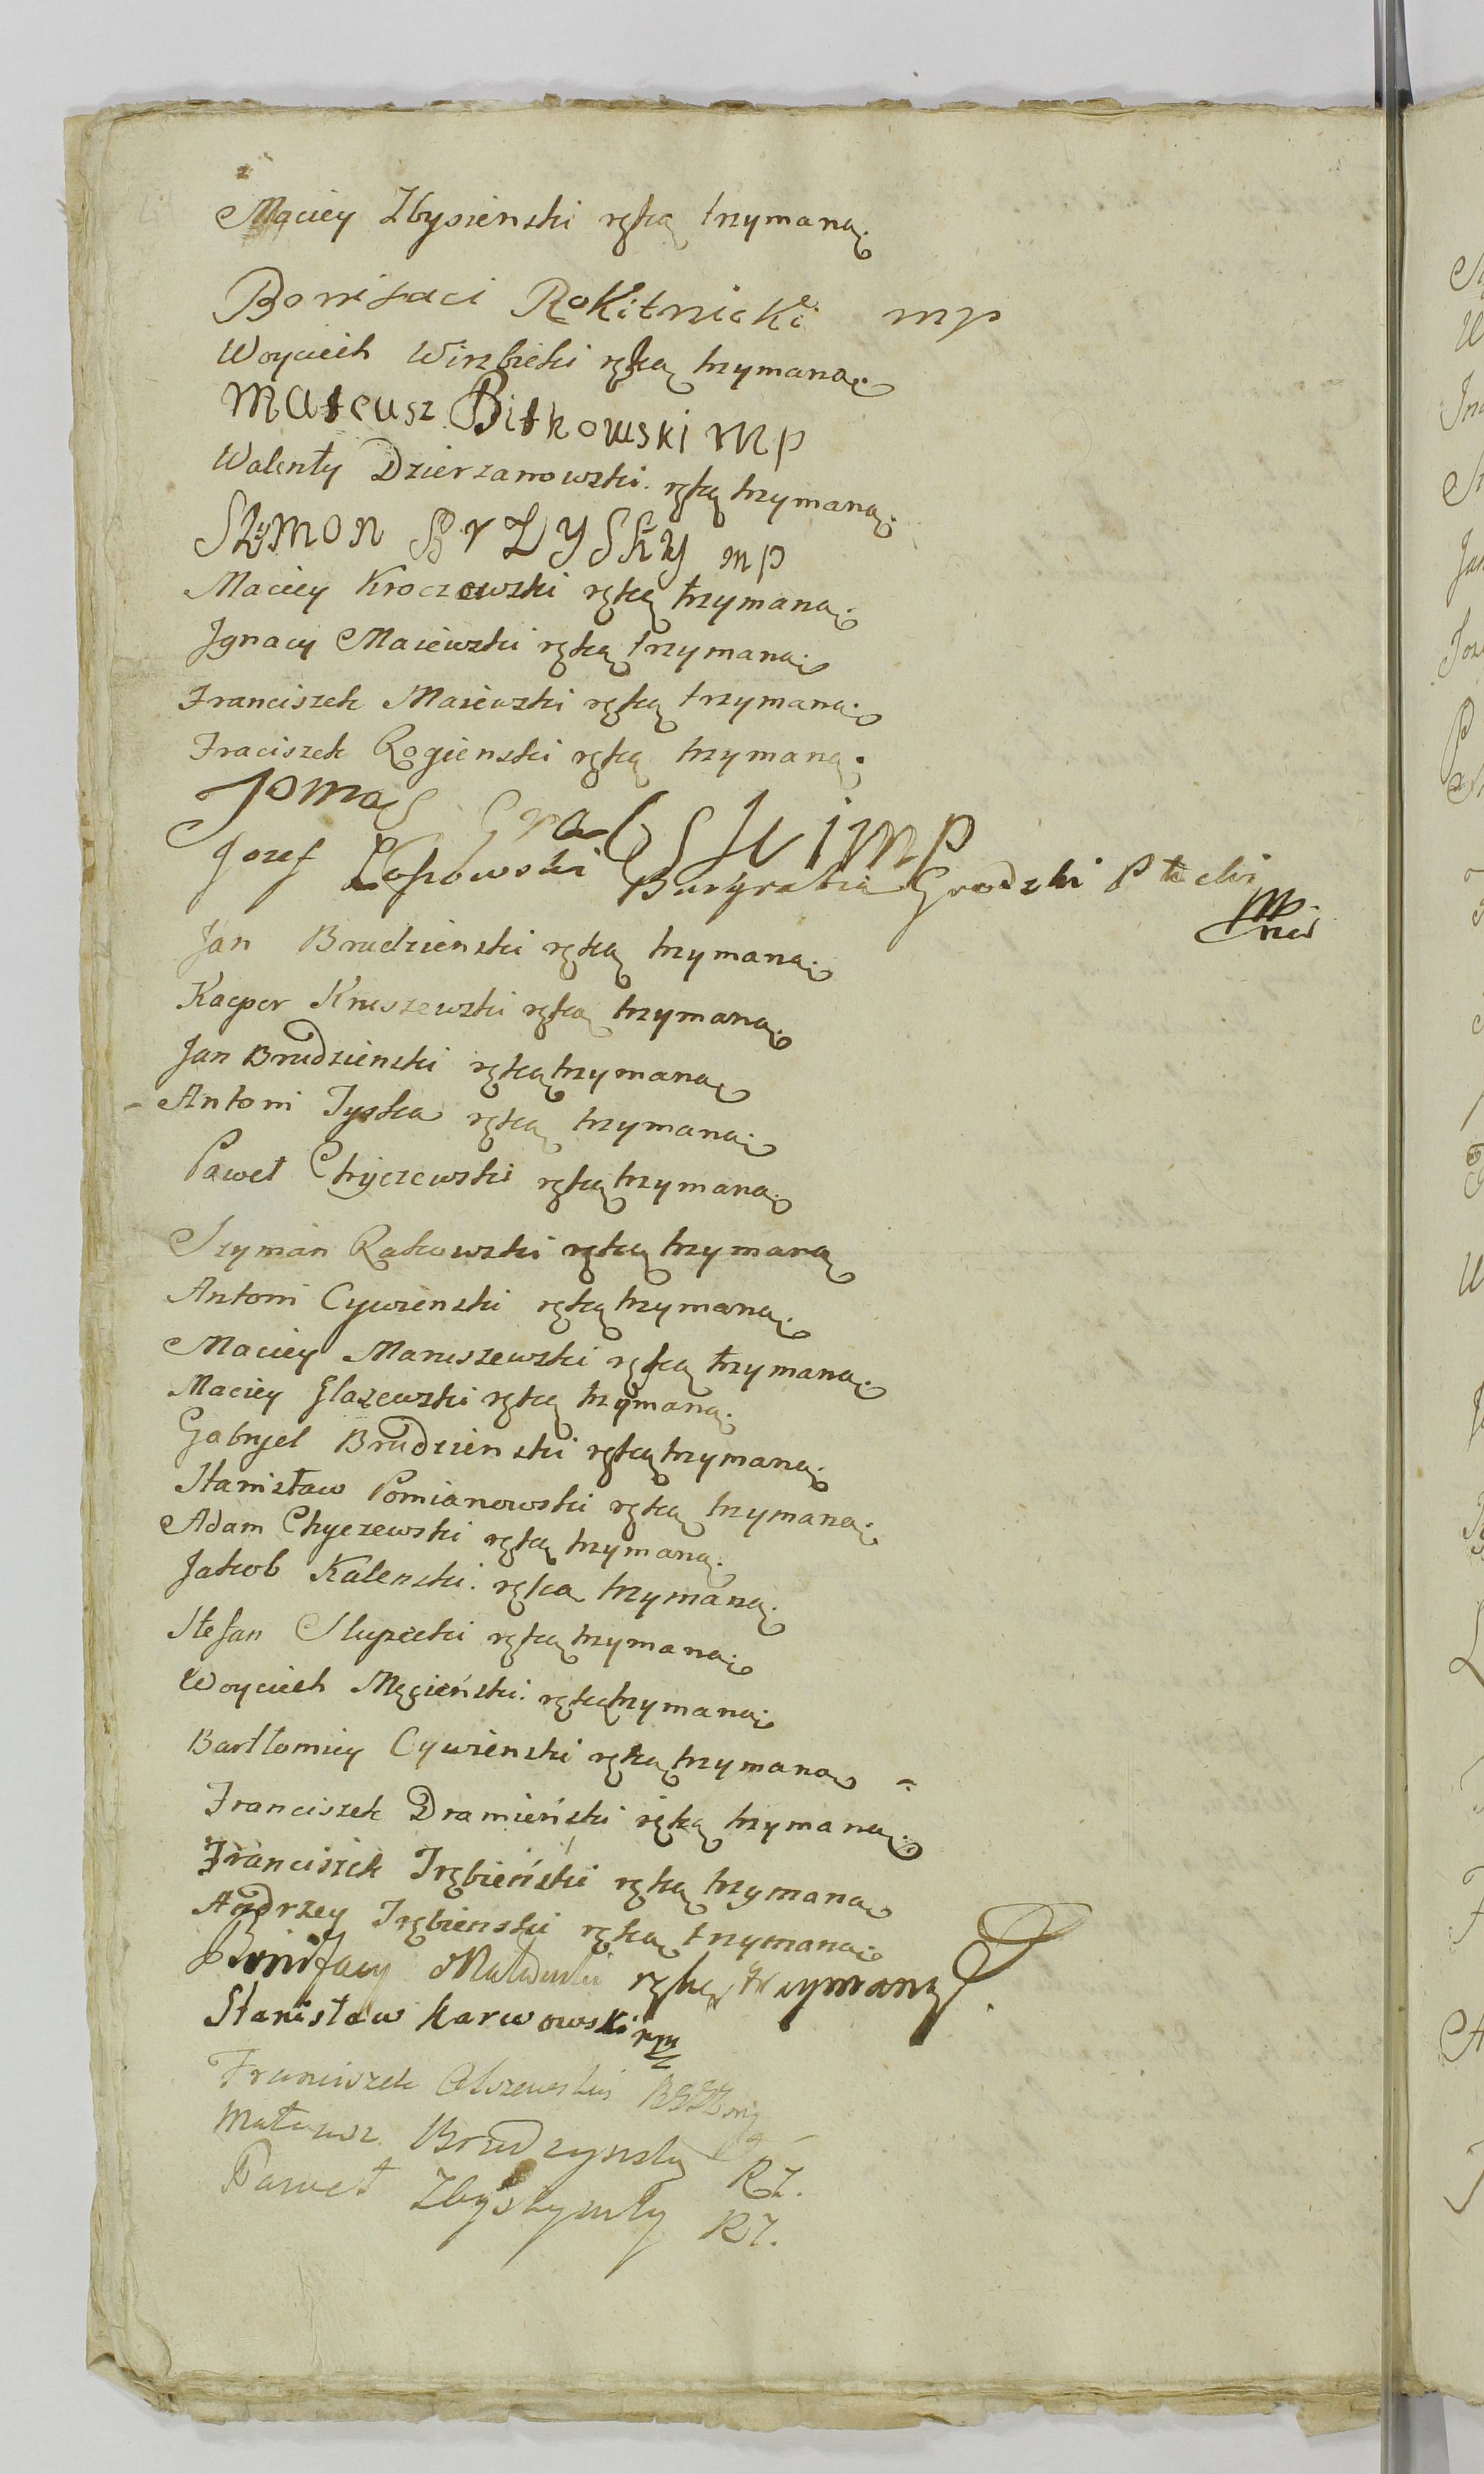 Maciey Zbysienski ręką trzymaną.
Bonifaci Rokitnicki mp
Woyciech Wirzbicki ręką trzymaną.
Mateusz Bitkowski mp
Walenty Dzierzanowski. ręką trzymaną.
Maciey Kroczewski ręką trzymaną.
Jgnacy Maiewski ręką trzymaną.
Franciszek Maiewski ręką trzymaną.
Fraciszek Rogienski ręką trzymaną.
Jozef Burgrabia Grodzki
Jan Brudzienski ręką trzymaną.
Kacper Kruszewski ręką trzymaną.
Jan Brudzienski ręką trzymaną
Antoni Tyska ręką trzymaną.
Paweł Chyczewski ręką trzymaną.
Szyman Rakowski ręką trzymaną
Antoni Cywienski ręką trzymaną.
Maciey Maruszewski ręką trzymaną.
Maciey Glazewski ręką trzymaną.
Gabryel Brudzienski ręką trzymaną.
Stanisław Pomianowski ręką trzymaną.
Adam Chyczewski ręką trzymaną.
Jakob Kalenski. ręka trzymaną.
Stefan Slupecki ręką trzymaną.
Woyciech ręką trzymaną.
Bartłomiey Cywienski ręką trzymaną
Franciszek Dramieński ręką trzymaną.
Franciszek Trębieński ręką trzymaną
Andrzey Trębienski ręką trzymaną.
ręką trzymaną.
Stanisław Karwowski mp
Franciszek
Mateusz Brudzynsky RZ.
Paweł RZ.